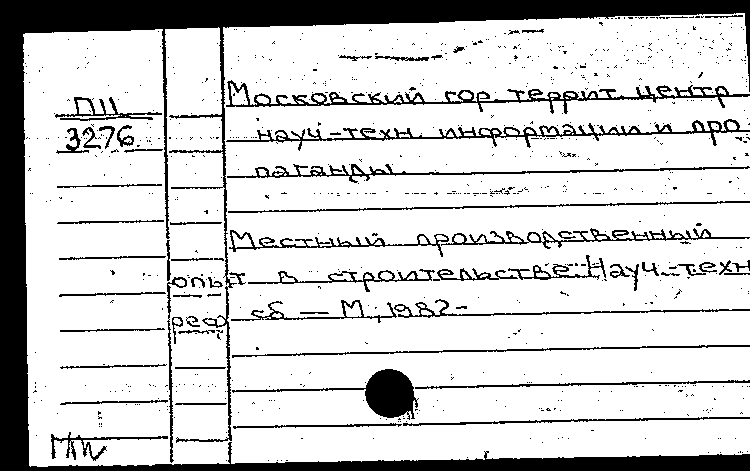 П11
3276
Московский гор. террит. центр
науч-техн. информации и про-
паганды.
Местный производственный
опыт в строительстве: Науч.-техн
реф. сб — М., 1982-